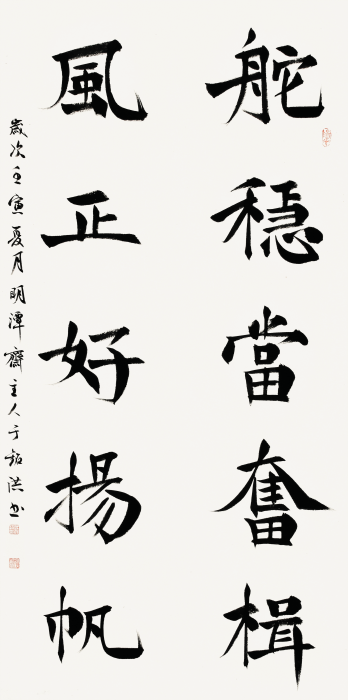 舵穩當奮楫
風正好揚帆
歲次壬寅夏月明潭齋主人于銘洪书